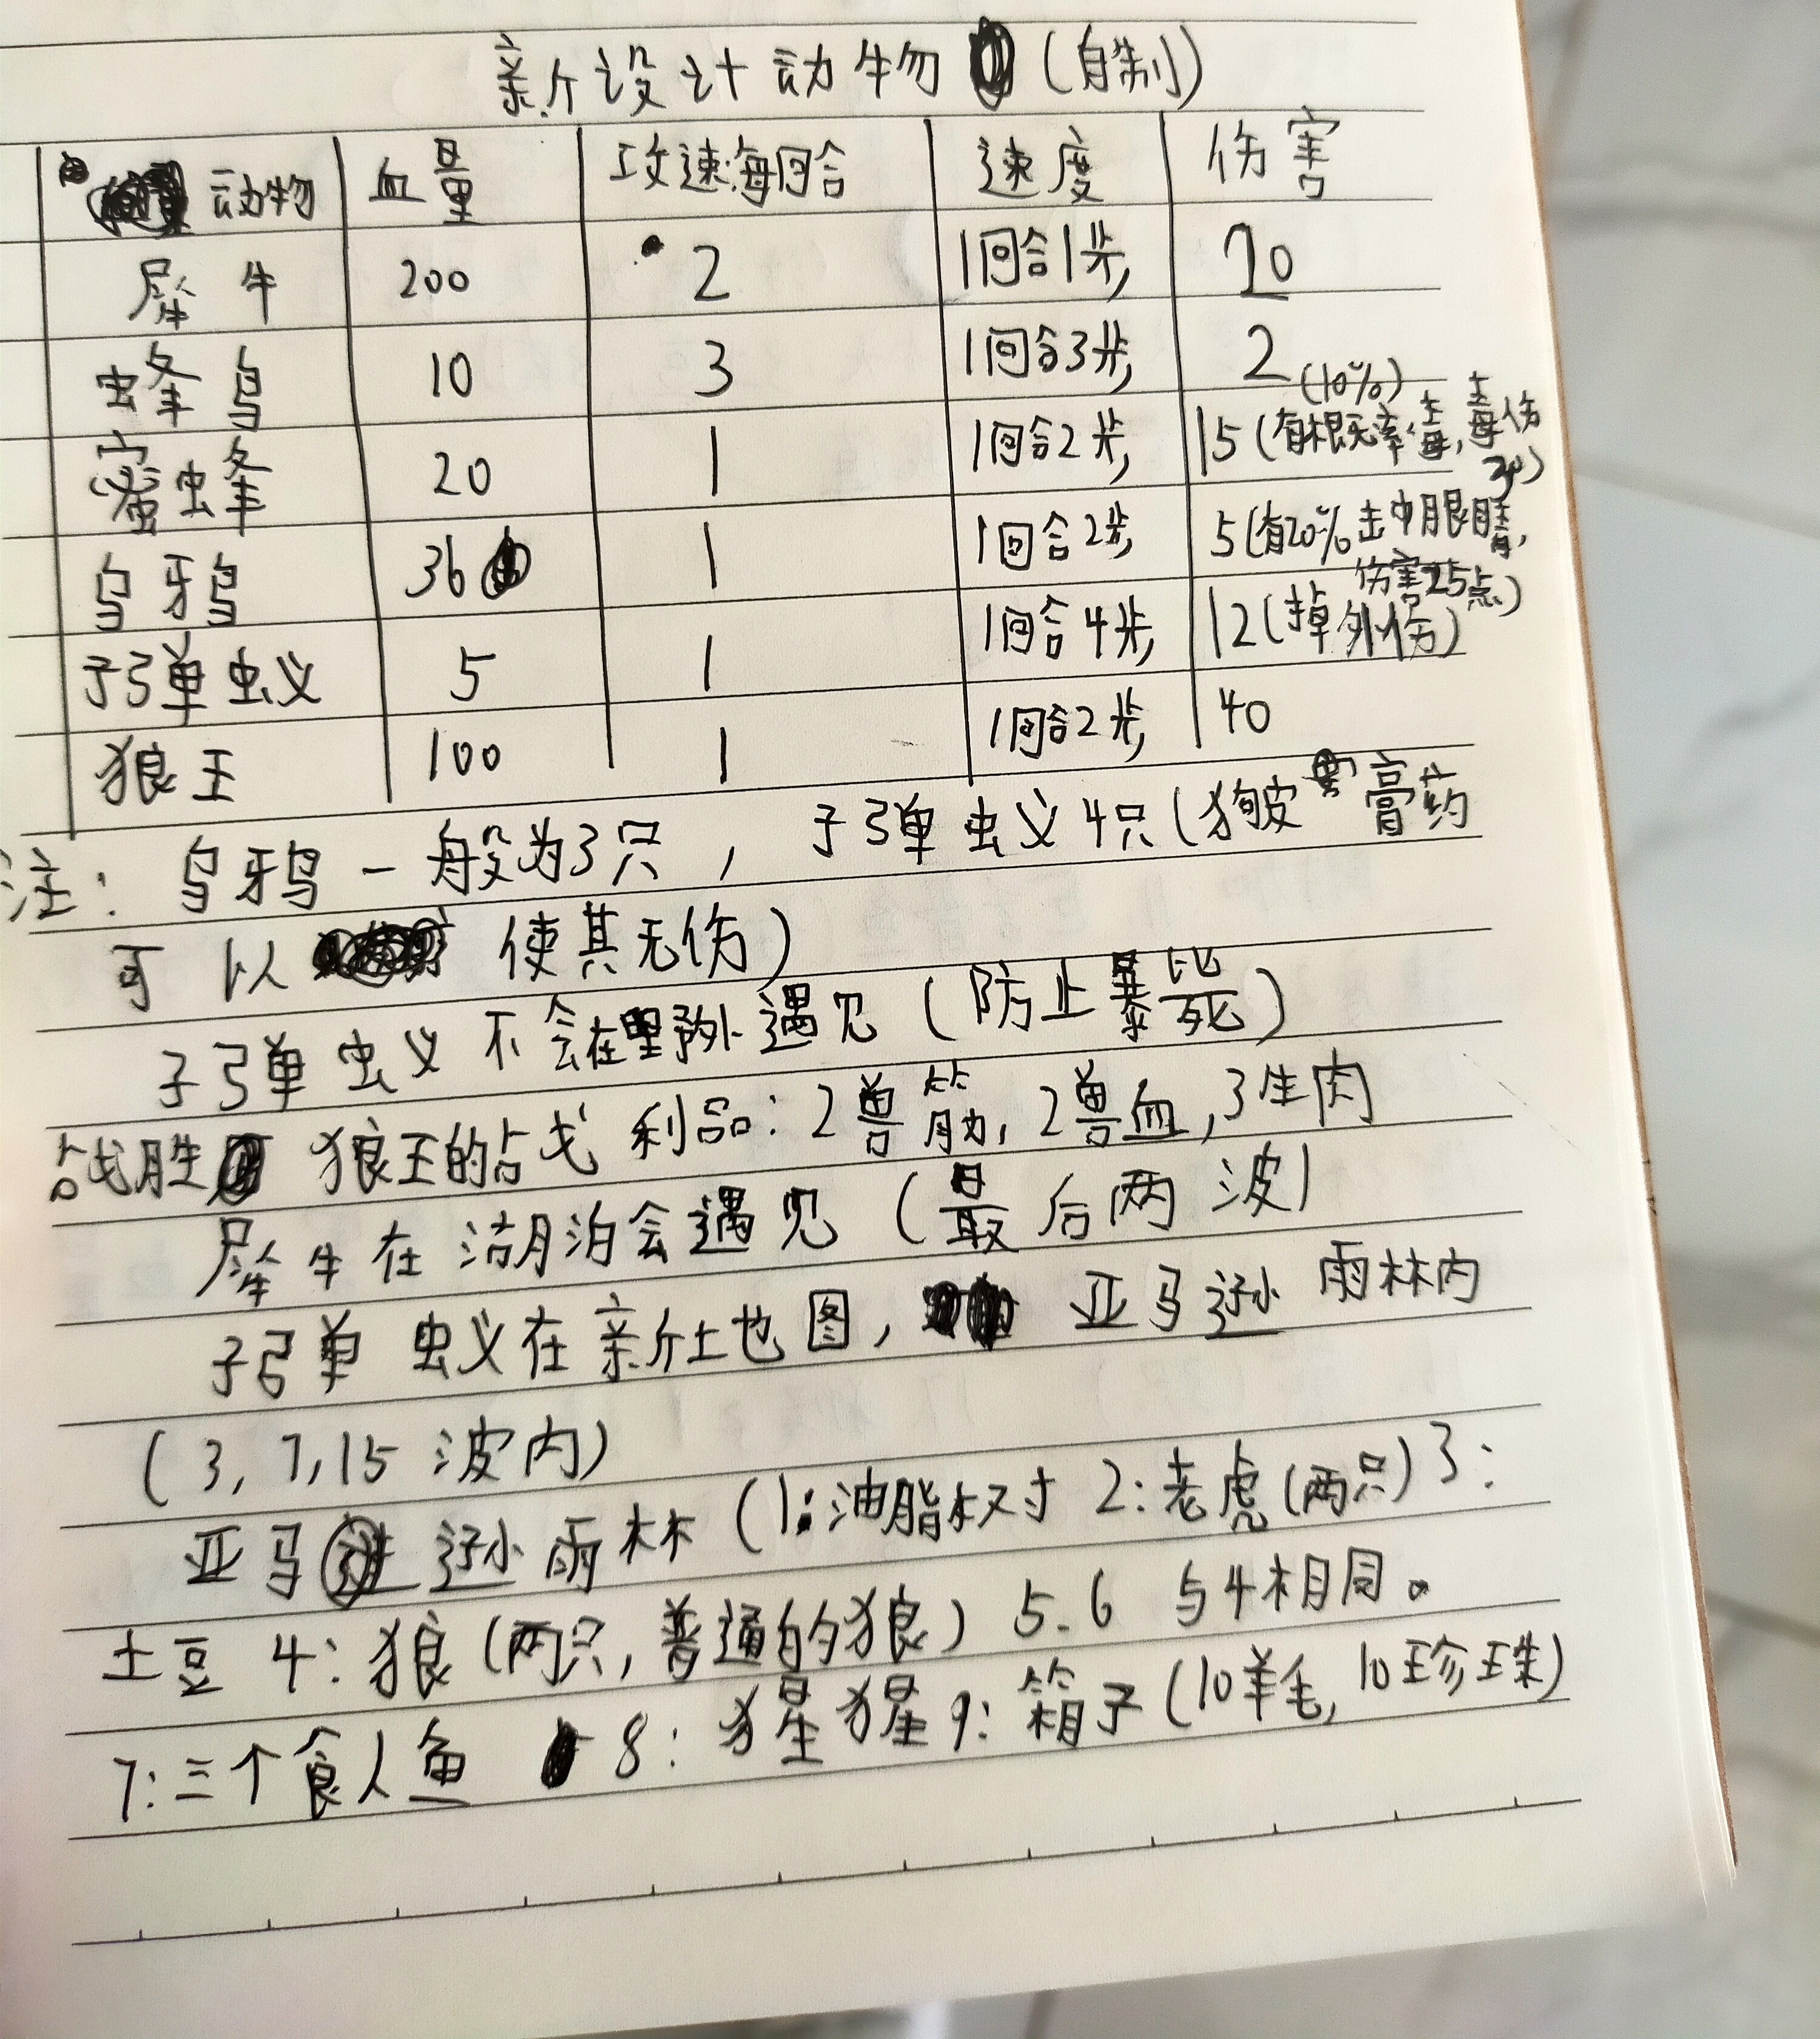 新设计动物（自制）
动物 血量 攻速:每回合 速度 伤害
犀牛 200 2 1回合1步 20
蜂鸟 10 3 1回合3步 2
蜜蜂 20 1 1回合2步 15(有概率毒,毒伤 (10%)
乌牙鸟 36 1 1回合2步 5(有20%击中眼睛,伤害25点)
子弹蚁 5 1 1回合4步 12(掉外伤)
狼王 100 1 1回合2步 40
注：乌鸦一般为3只，子弹蚁4只(狗皮膏药
可以使其无伤)
子弹蚁不会在野外遇见（防止暴毙）
战胜狼王的战利品：2兽筋,2兽血,3生肉
犀牛在湖泊会遇见（最后两波)
子弹蚁在新地图，亚马逊雨林内
(3,7,15波内)
亚马逊雨林(1:油脂树 2:老虎(两只)3:
土豆 4:狼(两只,普通的狼) 5.6 与4相同。
7:三个食人鱼 8:猩猩 9:箱子(10羊毛,10珍珠)